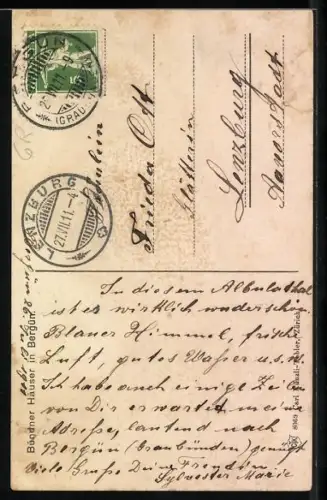 BERGÜN
(GRAUB
LENZBURG
27.VII.11.-4
Fräulein
Frieda Ott
Glätterin
Lenzburg
Aagerstfast
In diesem Albulathal
ist es wirklich wunderschön.
Blauer Himmel, frische
Luft, gutes Wasser u.s.w.
Ich habe auch einige Zeilen
von Dir erwartet, meine
Adresse, lautend nach
Bergün (Graubünden) genügt
Viele Grüße Dein Freundin
Sylvester Marie
Bündner Häuser in Bergün.